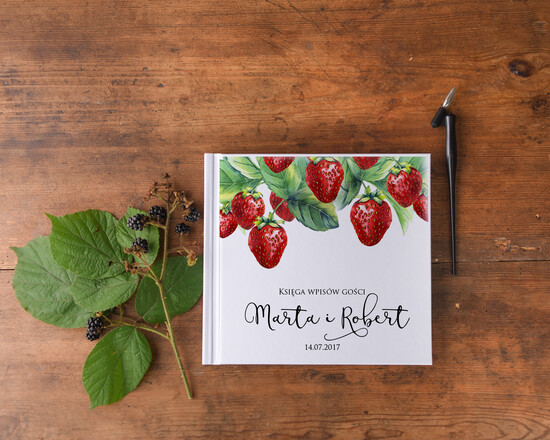 Księga wpisów gości
Marta i Robert
14.07.2017